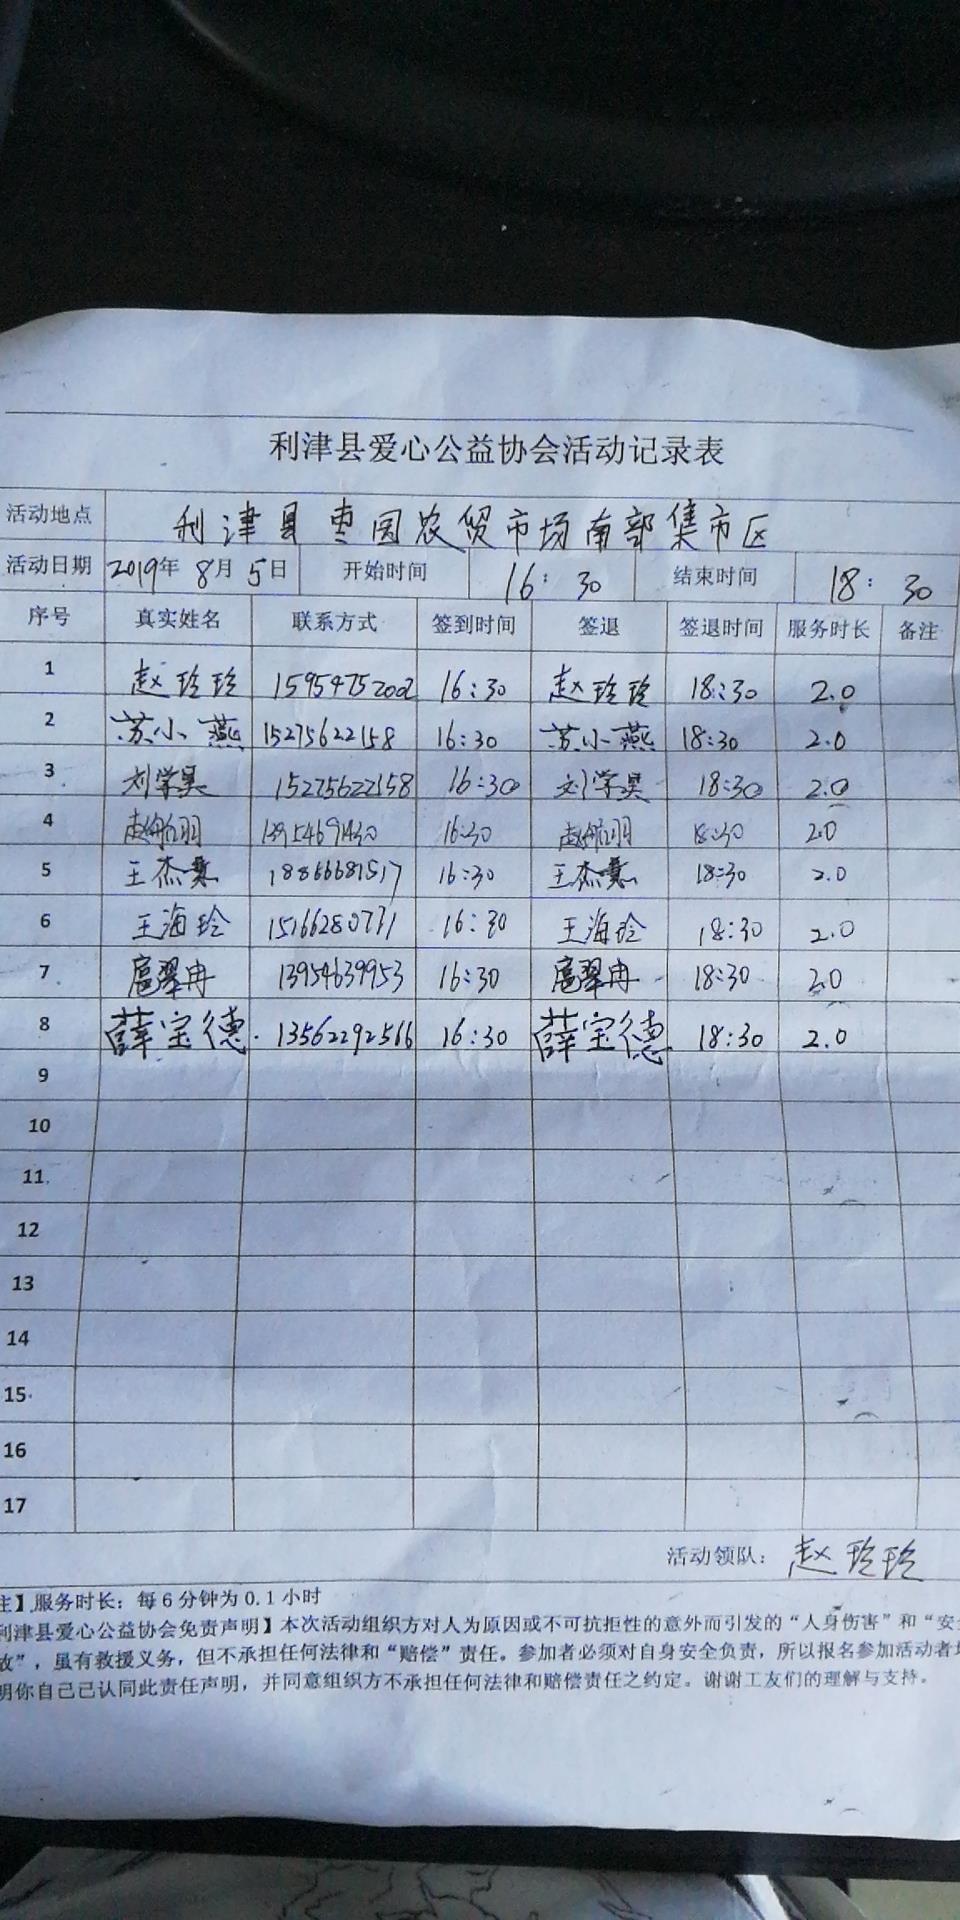 利津县爱心公益协会活动记录表
活动地点 利津县枣园农贸市场南部集市区
活动日期 2019年 8月 5日 开始时间 16:30 结束时间 18:30
序号 真实姓名 联系方式 签到时间 签退 签退时间 服务时长 备注
1 赵玲玲 15954752002 16:30 赵玲玲 18:30 2.0
2 苏小燕 15275622158 16:30 苏小燕 18:30 2.0
3 刘学昊 15275622158 16:30 刘学昊 18:30 2.0
4 16:30 18:30 2.0
5 王杰 18866681517 16:30 王杰 18:30 2.0
6 王海玲 15166280731 16:30 王海玲 18:30 2.0
7 扈翠冉 13954639953 16:30 扈翠冉 18:30 2.0
8 薛宝德 13562292566 16:30 薛宝德 18:30 2.0
9
10
11
12
13
14
15
16
17
活动领队: 赵玲玲
注】服务时长: 每6分钟为0.1小时
利津县爱心公益协会免责声明】本次活动组织方对人为原因或不可抗拒性的意外而引发的“人身伤害”和“安全
故”, 虽有救援义务, 但不承担任何法律和“赔偿”责任。参加者必须对自身安全负责, 所以报名参加活动者
明你自己已认同此责任声明, 并同意组织方不承担任何法律和赔偿责任之约定。谢谢工友们的理解与支持。